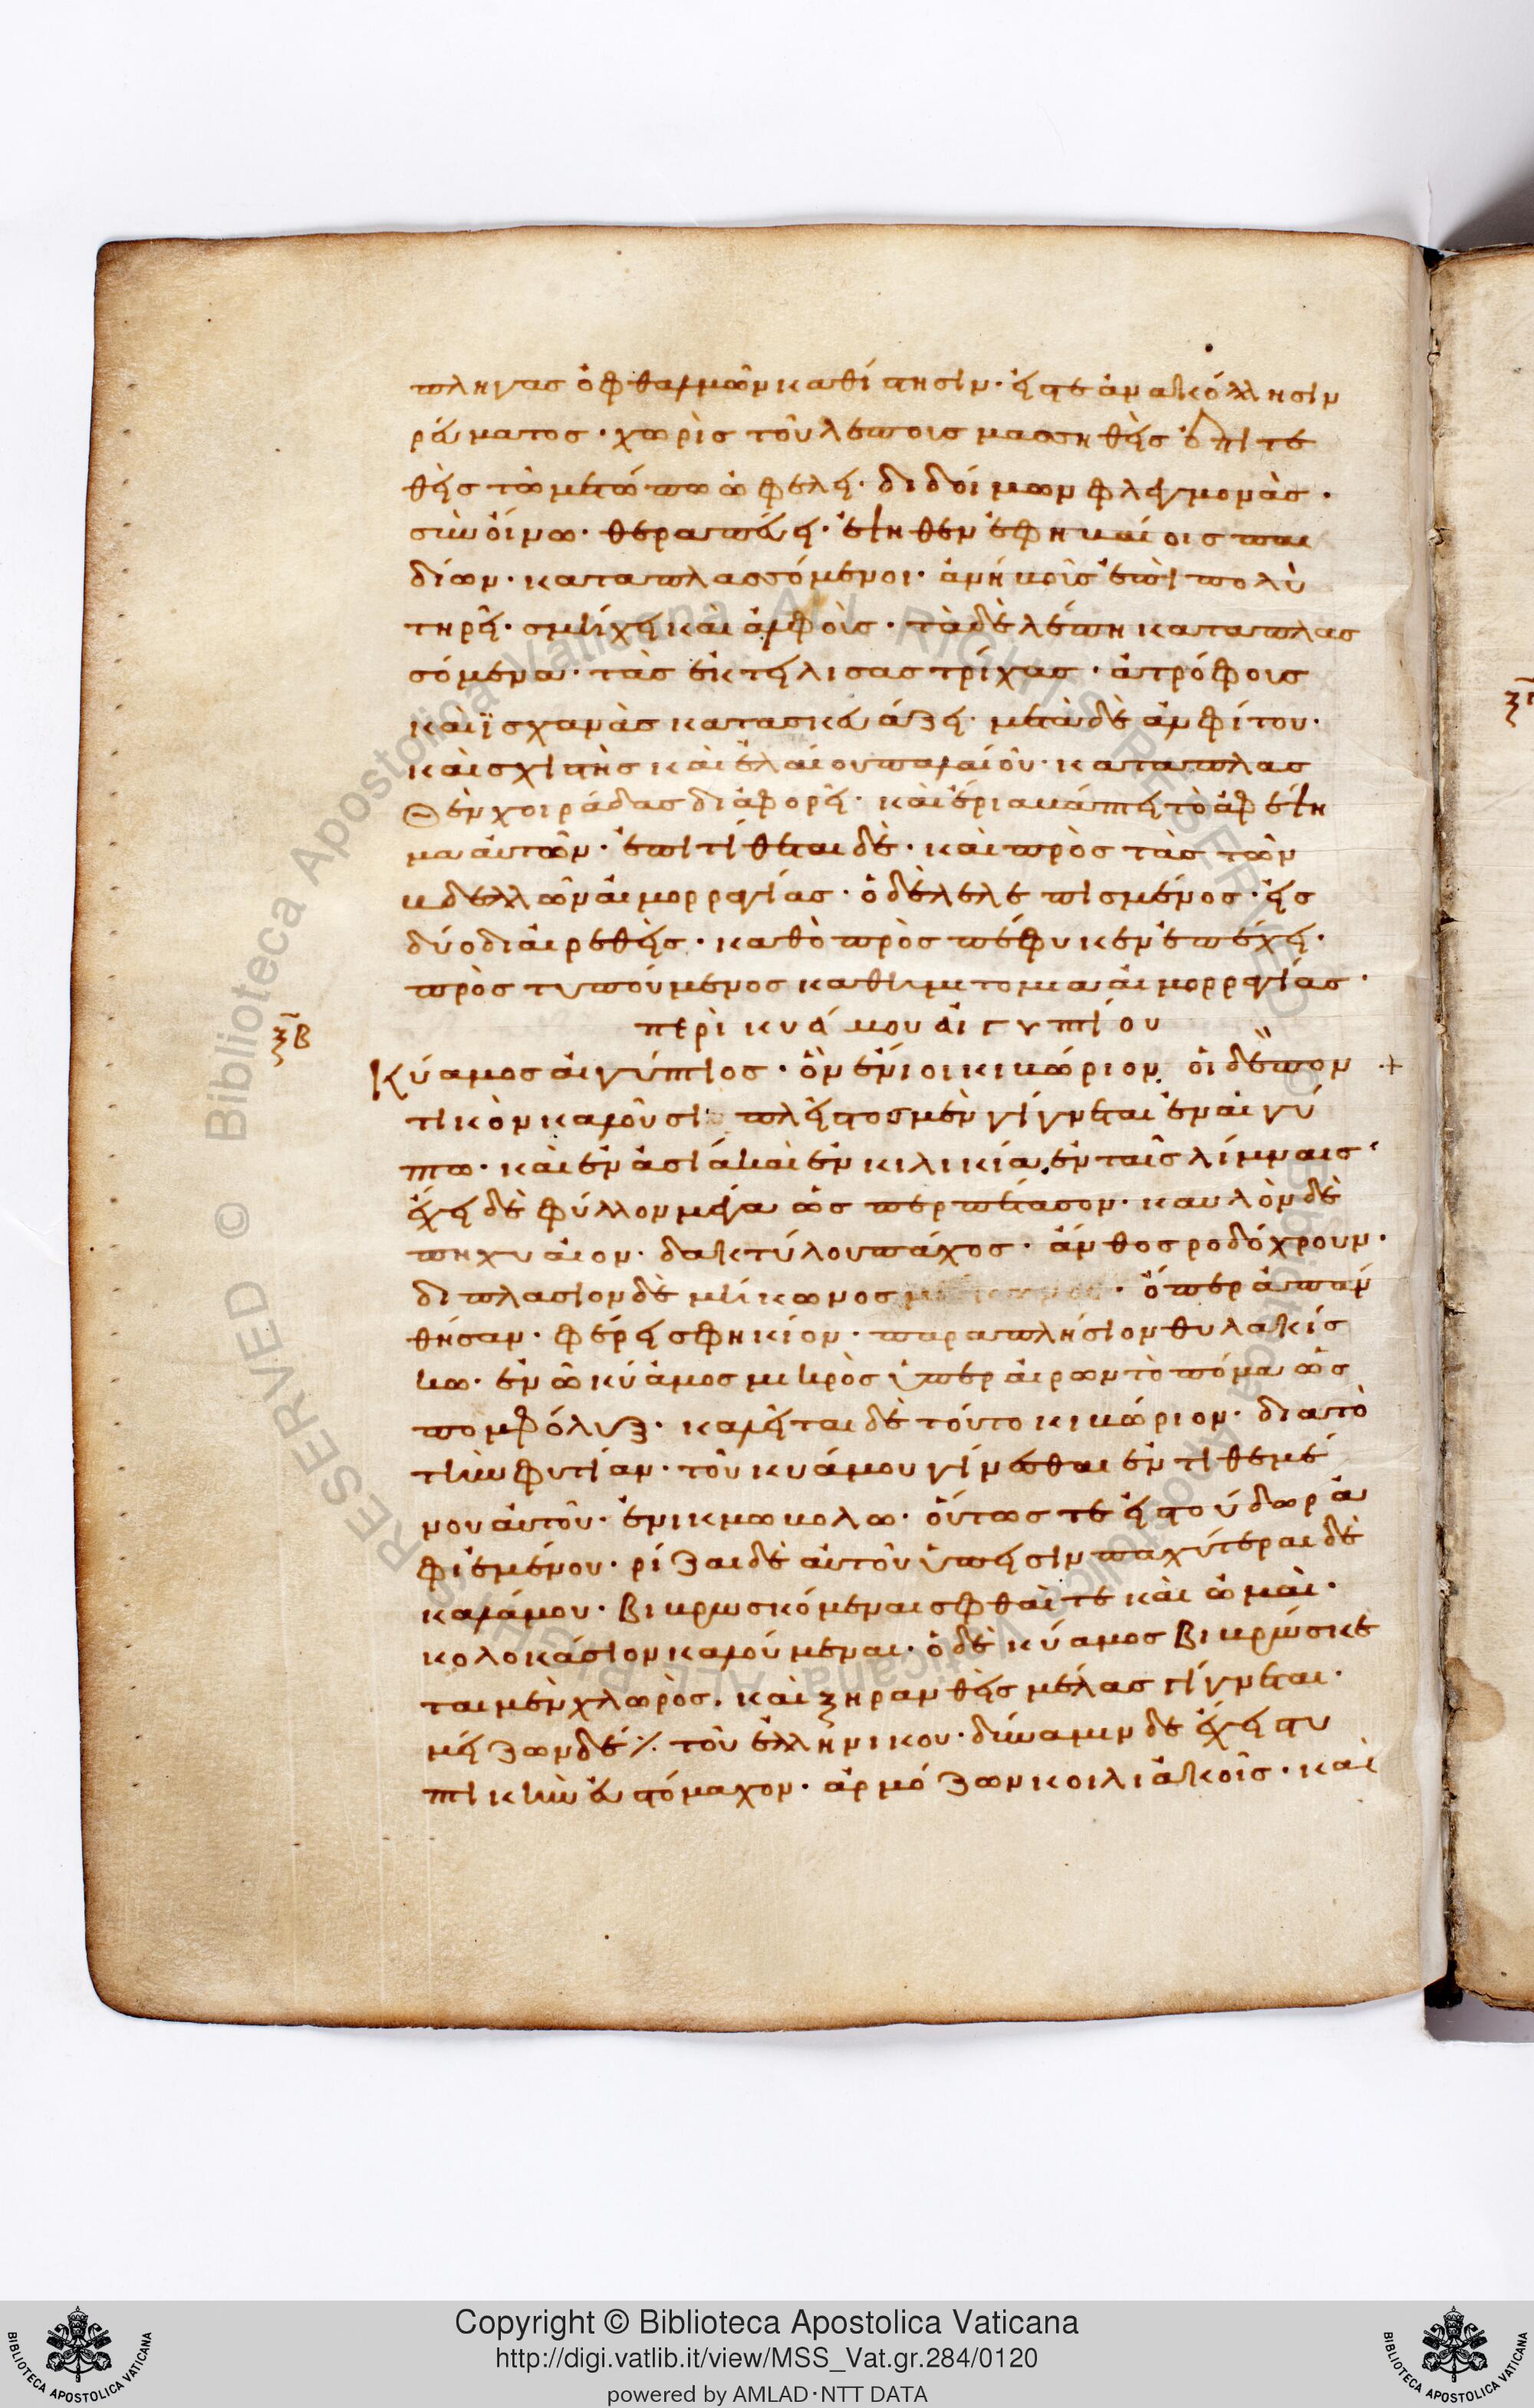 πληγασ ὀφθαλμῶν καθίστησιν· ἔστε ἀνακόλλησιν
ρέυματοσ· χωρὶσ τοῦ λέποισ μασσηθεὶσ ἐπιτε
θεὶσ τῶ μετώπω ὠφελεῖ· διδύμων φλεγμονὰσ·
σὺν ὀίνω· θεραπέυει· ἑψηθεν ἐφηκαίοισ παι
δίων· καταπλασσόμενοι· ἀνήκοῖσ ἐπὶ πολὺ
τηρεῖ· σμήχει καὶ ἀλφοὺσ· τὰ δὲ λέπη καταπλασ
σόμενα· τὰσ ἐκτείλισασ τρίχασ· ἀτρόφουσ
καὶ ϊσχανὰσ κατασκευάζει· μετὰ δὲ ἀλφίτου·
καὶ σχιστῆσ καὶ ἐλαίου παλαιοῦ· καταπλασ
Θεὶν χοιράδασ διαφορεῖ· καὶ ἔρια βάπτει τὸ ἀφέψη
μα ἀυτῶν· ἐπιτίθεται δὲ· καὶ πρὸσ τὰσ τῶν
βδελλῶν ἁιμορραγίασ· ὁ δὲ λελεπισμένοσ· εἰσ
δύο διαιρεθεὶσ· καθὸ προσπέφυκεν ἐπέχει·
προστυπούμενοσ καθημιτομια ἁιμορραγίασ·
περὶ κυάμου ἀιγυπτίου
ξβ
Κύαμοσ ἀιγύπτιοσ· ὃν ἔνιοι κιβώριον οἱ δὲ πον
τικὸν καλοῦσι πλεῖστοσ μὲν γίγνεται ἐν ἀιγύ
πτω· καὶ ἐν ἀσία καὶ ἐν κιλικία, ἐν ταῖσ λίμναισ
ἔχει δὲ φύλλον μέγα ὡσ περ πέτασον· καυλὸν δὲ
πηχυαῖον· δακτύλου πάχοσ· ἄνθοσ ροδόχρουν·
διπλασίον δὲ μήκωνοσ · ὅπερ ἀπαν
θῆσαν· φέρει σφηκίον· παραπλήσιον θυλακίσ
κω· ἐν ὧ κύαμοσ μικρὸσ ὑπεραίρων τὸ πόμα ὡσ
πομφόλυξ· καλεῖται δὲ τοῦτο κιβώριον· δια τὸ
τὴν φυτίαν· τοῦ κυάμου γίνεσθαι ἐντιθεμέ
νου ἀυτοῦ· ἐν ικμω βολω· ὅυτωσ τε εἰσ το ύδωρ ἀ
φιεμένου· ρίζαι δὲ ἀυτοῦ ὕπεισιν παχύτεραι δὲ
καλάμου· βιβρωσκόμεναι σεφθαὶ τε καὶ ὠμαὶ·
κολοκάσιον καλούμεναι· ὁ δὲ κύαμοσ βιβρώσκε
ται μὲν χλωρὸσ. καὶ ξηρανθεὶσ μέλασ γίγνεται·
μείζων δέ ⁒ τοῦ ἑλληνικου· δύναμιν δὲ ἔχει στυ
πτικὴν ἐυστόμαχον· ἁρμόζων κοιλιακοῖσ· καὶ
BIBLIOTECA APOSTOLICA VATICANA
Copyright © Biblioteca Apostolica Vaticana
http://digi.vatlib.it/view/MSS_Vat.gr.284/0120
powered by AMLAD·NTT DATA
BIBLIOTECA APOSTOLICA VATICANA